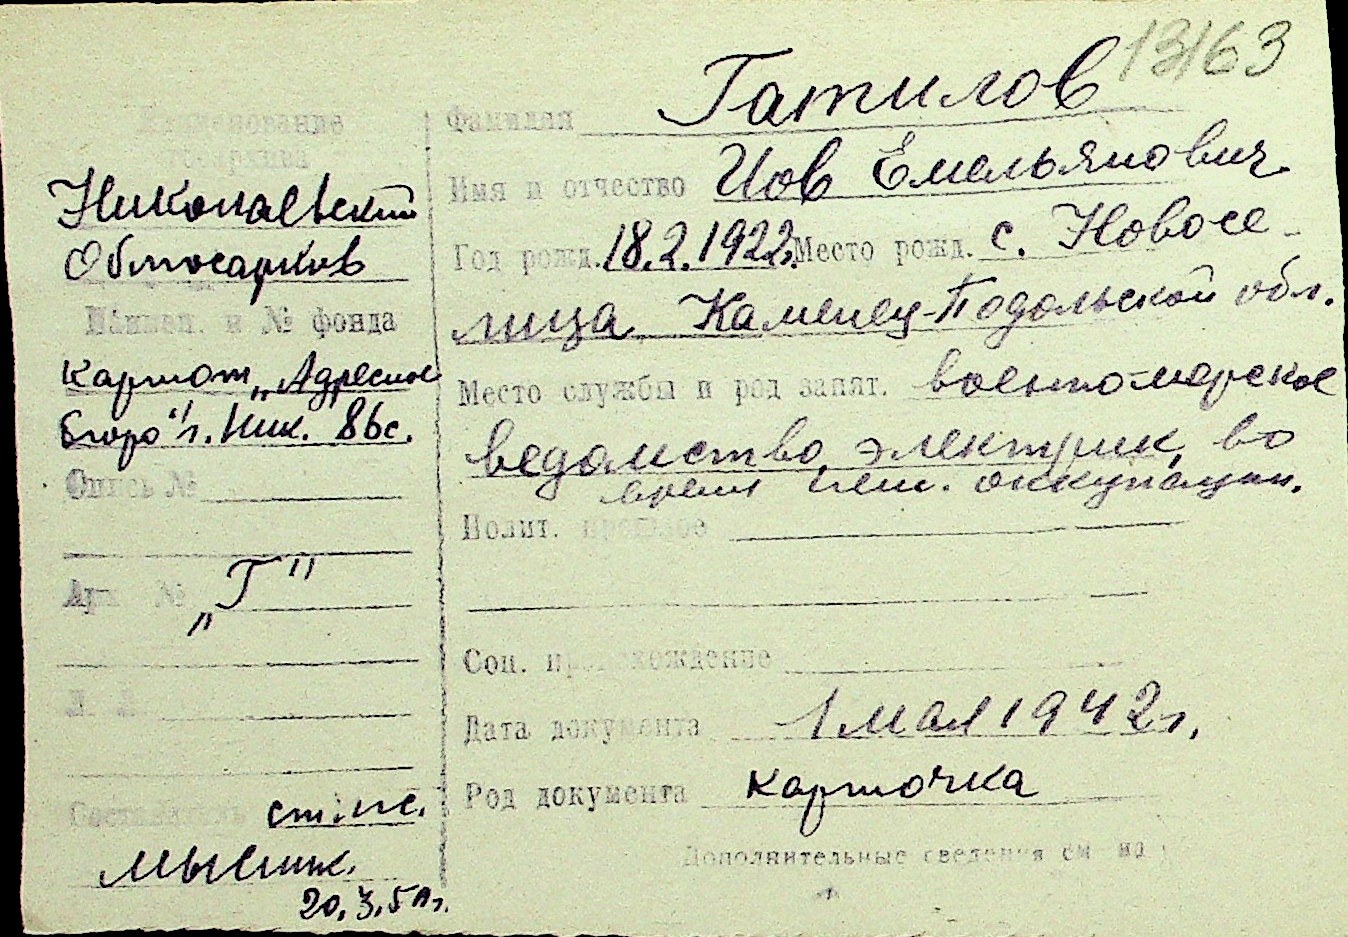 13163
Наименование
госархива
Николаевский
Облгосархив
Наимен. и № фонда
Картот. „Адресное
бюро" г. Ник. 86с.
Опись №
Арх. № „Г"
Составитель ст. н.с.
20.3.51г.
Фамилия Гатилов
Имя и отчество Иов Емельянович
Год рожд. 18.2.1922г. Место рожд. с. Новосе-
лица Каменец-Подольской обл.
Место службы и род занят. военно-морское
ведомство, электрик, во
время нем. оккупации.
Полит. прошлое
Соц. происхождение
Дата документа 1 мая 1942г.
Род документа карточка
Дополнительные сведения см на